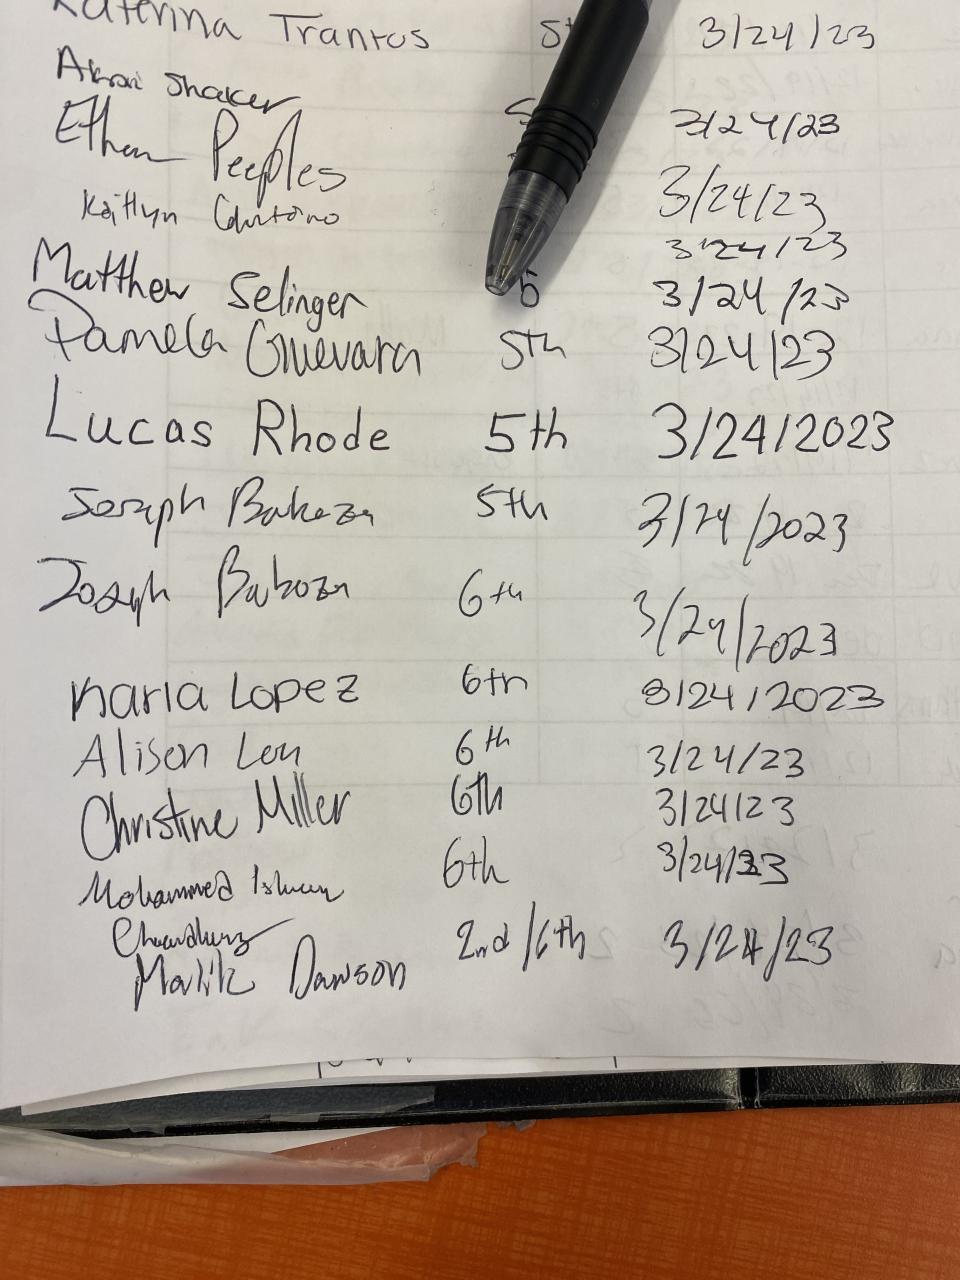 Katerina Trantos 5t 3/24/23
Shaker
Ethan Peeples 3/24/23
Kaitlyn 3/24/23
3/24/23
Matthew Selinger 5 3/24/23
Pamela Guevara 5th 3/24/23
Lucas Rhode 5th 3/24/2023
Joseph 5th 3/24/2023
Joseph 6th 3/24/2023
Karla Lopez 6th 3/24/2023
Alison Leu 6th 3/24/23
Christine Miller 6th 3/24/23
Mohammed 6th 3/24/23
Chowdhury
Malik Dawson 2nd/6th 3/24/23